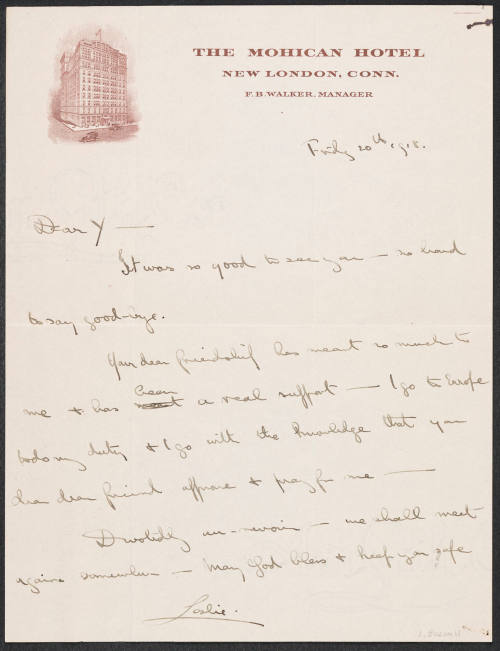 THE MOHICAN HOTEL
NEW LONDON, CONN.
F. B. WALKER, MANAGER
Friday 20th 1918.
Dear Y —
It was so good to see you — so hard
to say good-bye.
Your dear friendship has meant so much to
me & has been a real support — I go to Europe
to do my duty & I go with the knowledge that you
dear dear friend approve & pray for me —
au-revoir — we shall meet
again somewhere — May God bless & keep you safe
Leslie.